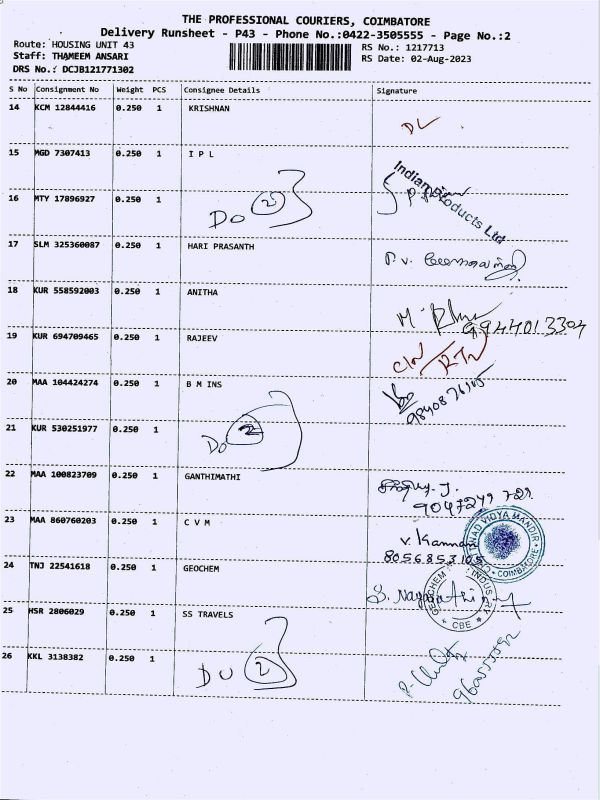 THE PROFESSIONAL COURIERS, COIMBATORE
Delivery Runsheet - P43 - Phone No.:0422-3505555 - Page No.:2
Route: HOUSING UNIT 43
Staff: THAMEEM ANSARI
DRS No.: DCJB121771302
RS No.: 1217713
RS Date: 02-Aug-2023
S No Consignment No Weight PCS Consignee Details Signature
14 KCM 12844416 0.250 1 KRISHNAN DL
15 MGD 7307413 0.250 1 I P L
Indian Products Ltd
16 MTY 17896927 0.250 1 Do 2
17 SLM 325360087 0.250 1 HARI PRASANTH P. v.
18 KUR 558592003 0.250 1 ANITHA M.
9944013304
19 KUR 694709465 0.250 1 RAJEEV
20 MAA 104424274 0.250 1 B M INS
21 KUR 530251977 0.250 1 Do 2
22 MAA 100823709 0.250 1 GANTHIMATHI
9047249 729
23 MAA 860760203 0.250 1 C V M V. Kannan
8056853105
VIDYA MANDIR COIMBATORE
24 TNJ 22541618 0.250 1 GEOCHEM
GEOCHEM INDUSTRY CBE
25 HSR 2806029 0.250 1 SS TRAVELS
26 KKL 3138382 0.250 1 DO 2